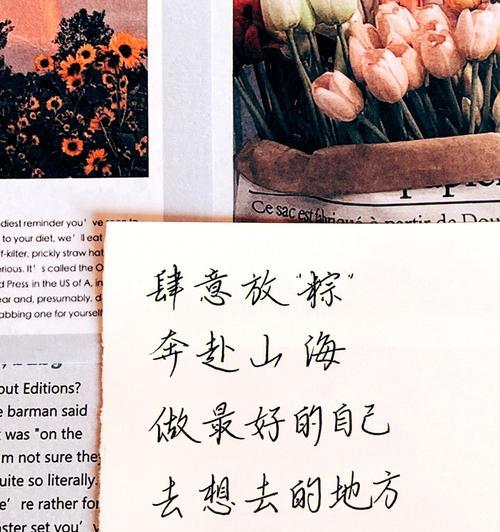 Ce sac est fabriqué à partir de Dou
diest reminder you've
to your diet, we'll eat
f-kilter, prickly straw hat
rious. It's called the O
d Press in the US of A, in
ear and, presumably, d
abbing one for yourself
out Editions?
e barman said
t was "on the
'm not sure they
uite so literally.
e're rather for
aster set you'v
肆意放“粽”
奔赴山海
做最好的自己
去想去的地方